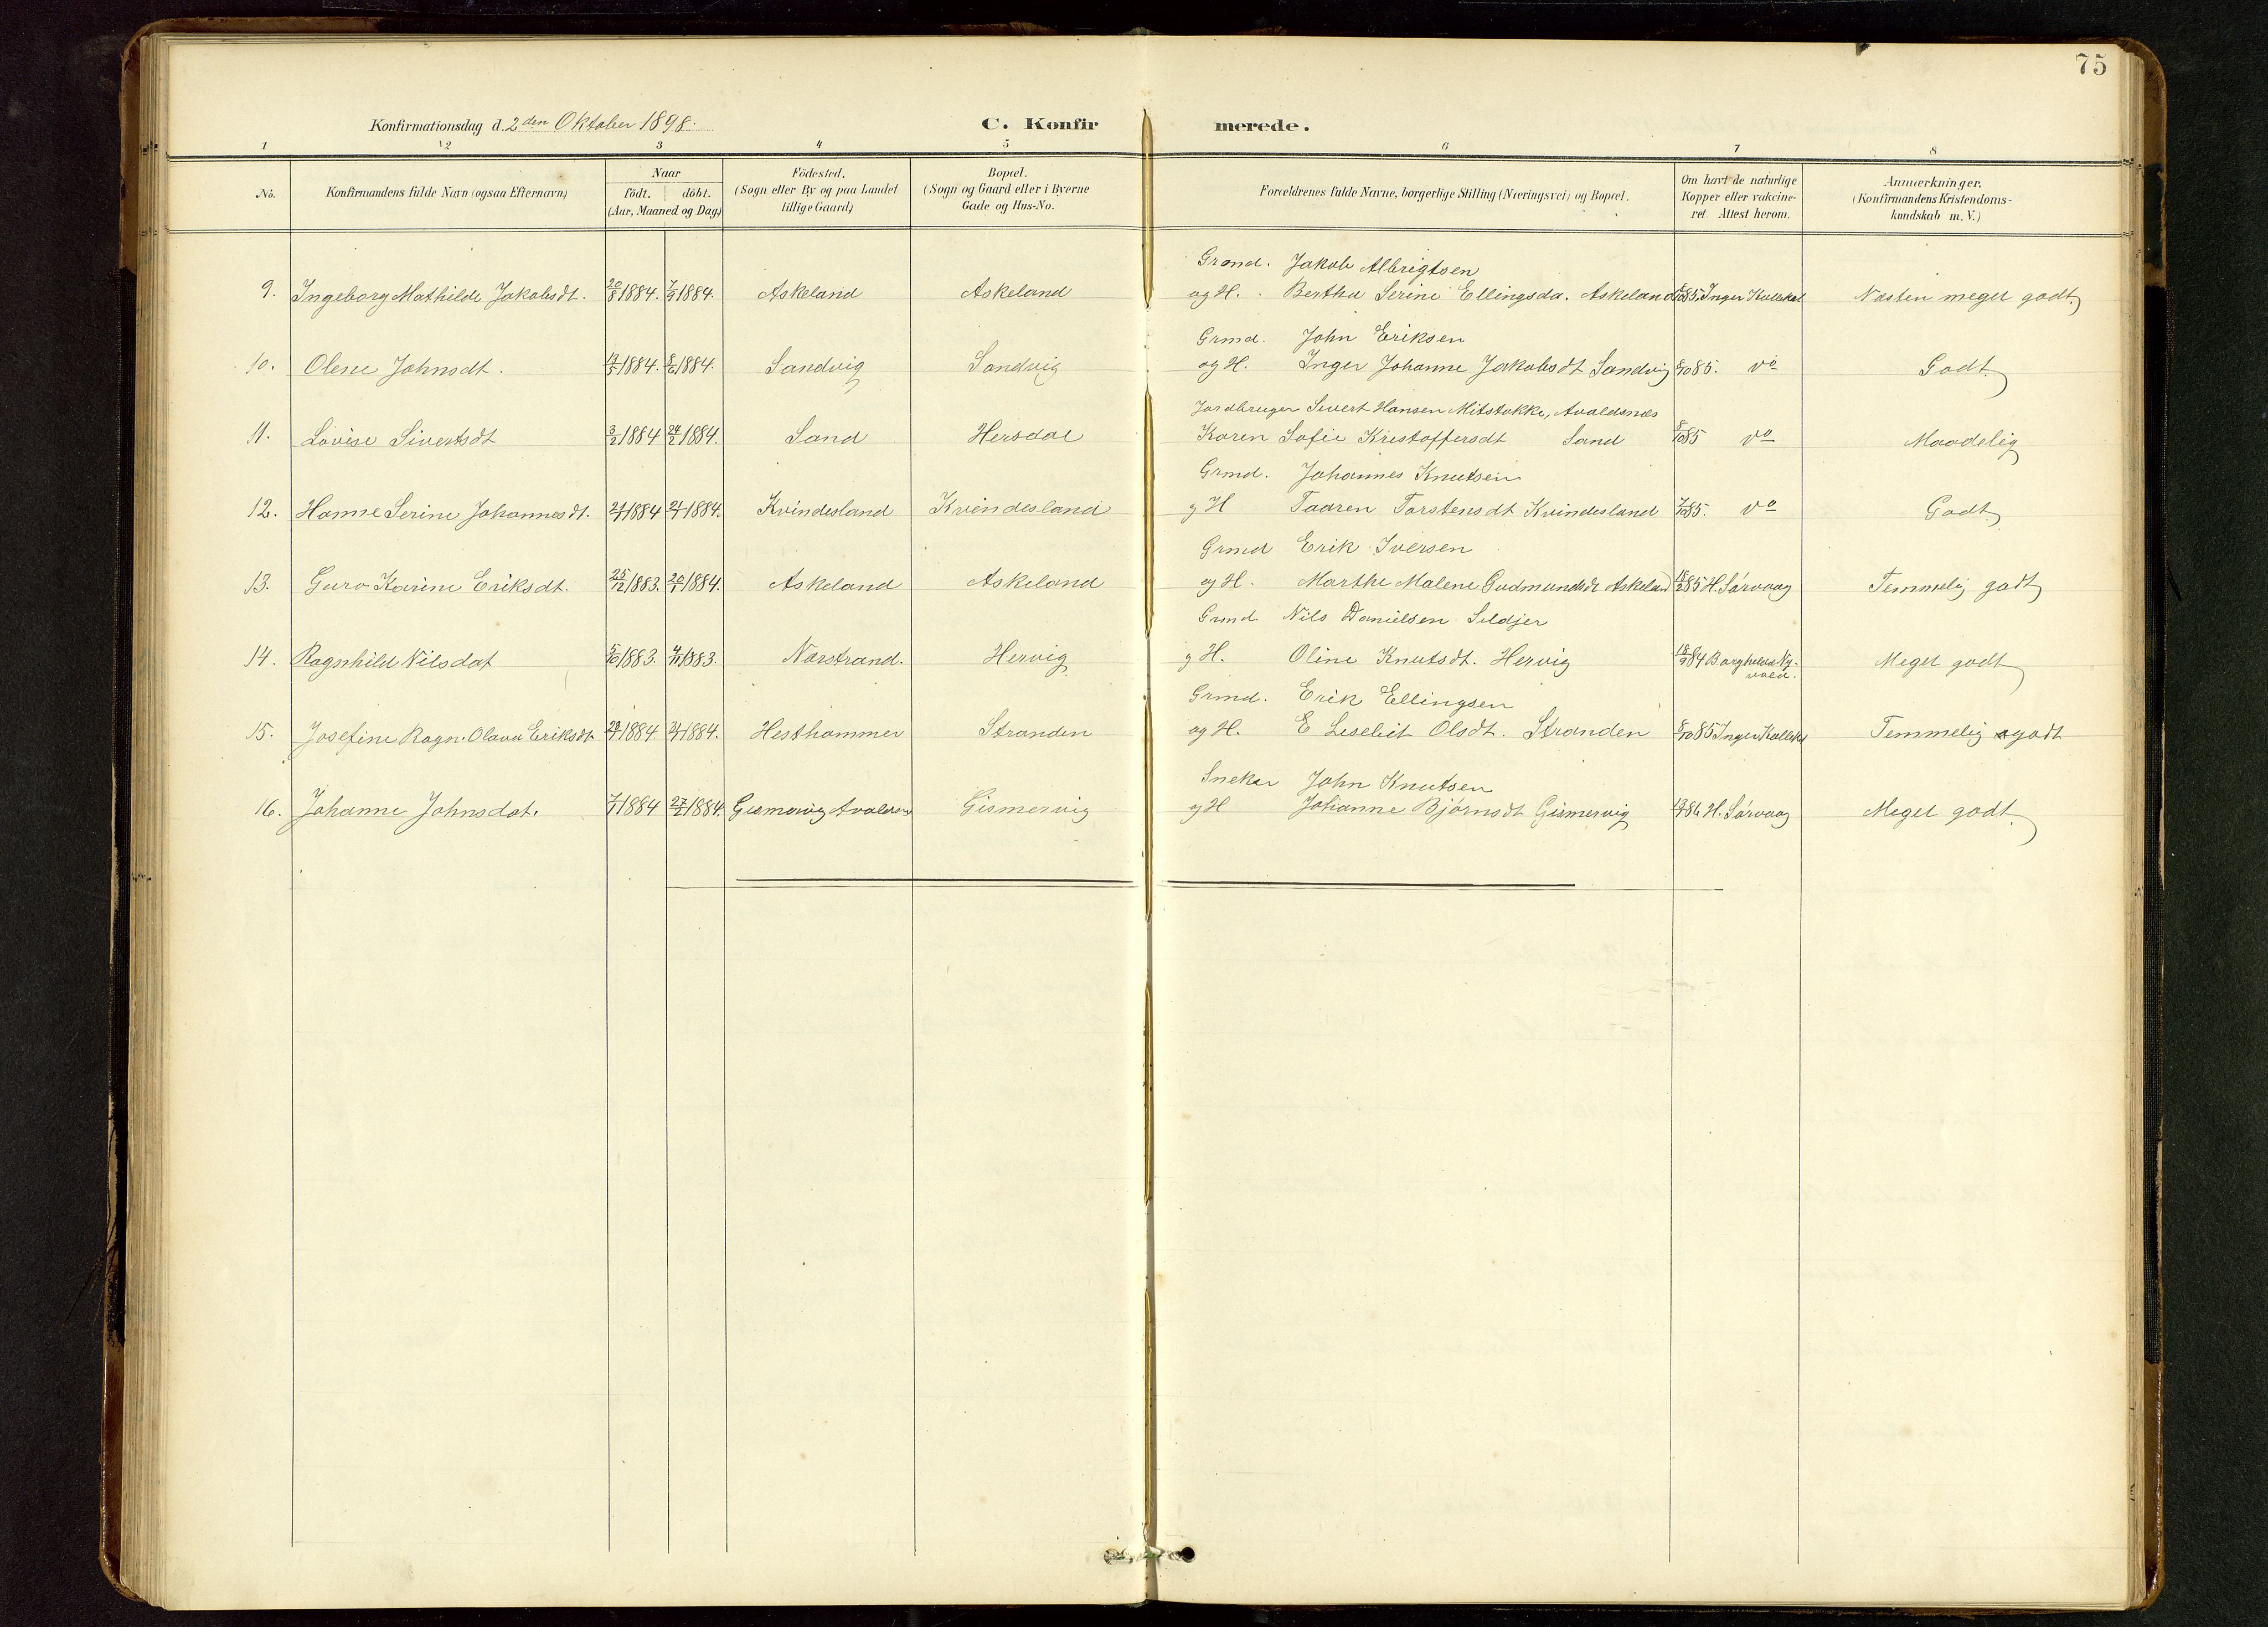 75
Konfirmationsdag d. 2den Oktober 1898.
C. Konfirmerede.
1 2 3 4 5 6 7 8
No.
Konfirmandens fulde Navn (ogsaa Efternavn)
Naar
födt. döbt.
(Aar, Maaned og Dag)
Födested.
(Sogn eller By og paa Landet
tillige Gaard)
Bopæl.
(Sogn og Gaard eller i Byerne
Gade og Hus-No.
Forældrenes fulde Navne, borgerlige Stilling (Næringsvei) og Bopæl.
Om havt de naturlige
Kopper eller vakcine-
ret. Attest herom.
Anmærkninger.
(Konfirmandens Kristendoms-
kundskab m. V.)
Grmd. Jakob Albrigtsen
9. Ingeborg Mathilde Jakobsdt. 20/8 1884. 7/9 1884. Askeland Askeland og H. Bertha Serine Ellingsda. Askeland 85. Inger Næsten meget godt
Grmd. John Eriksen
10. Olene Johnsdt. 1884. 8/6 1884. Sandvig Sandvig og H. Inger Johanne Jakobsdt Sandvig 8/10 85. Do Godt.
Jordbruger Sivert Hansen Mitstokke, Avaldsnæs
11. Lovise Sivertsdt 3/2 1884 24/2 1884. Sand Hersdal Karen Sofie Kristoffersdt Sand 8/10 85 Do Maadelig
Grmd. Johannes Knutsen
12. Hanne Serine Johannesdt. 1884 1884. Kvindesland Kvindesland g H Taaren Torstensdt Kvindesland 85. Do Godt
Grmd Erik Iversen
13. Guro Karine Eriksdt. 25/12 1883. 20/1 1884. Askeland Askeland og H. Marthe Malene Gudmundsdt Askeland 85 H. Sørvaag Temmelig godt
Grmd. Nils Danielsen Seldjer
14. Ragnhild Nilsdat 5/10 1883. 4/11 1883. Nærstrand. Hervig g H. Oline Knutsdt. Hervig 84 Borghild
Meget godt
Grmd. Erik Ellingsen
15. Josefine Ragn. Olava Eriksdt. 1884 1884. Hesthammer Stranden og H. E Lesebet Olsdt. Stranden 8/10 85 Inger Temmelig godt
Sneker John Knutsen
16. Johanne Johnsdat. 7/1 1884 27/2 1884. Gismervig Gismervig og H Johanne Bjørnsdt Gismervig 86 H. Sørvaag Meget godt.